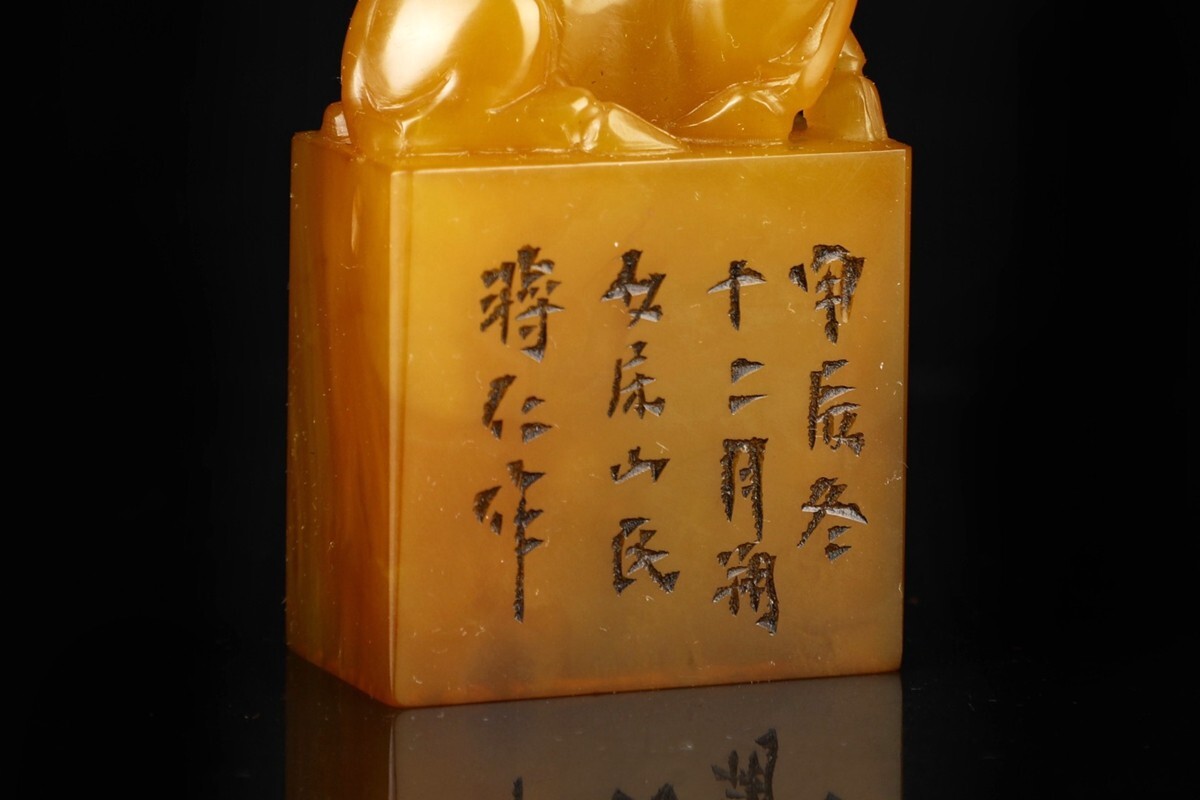 甲辰冬
十二月朔
女床山民
蔣仁作